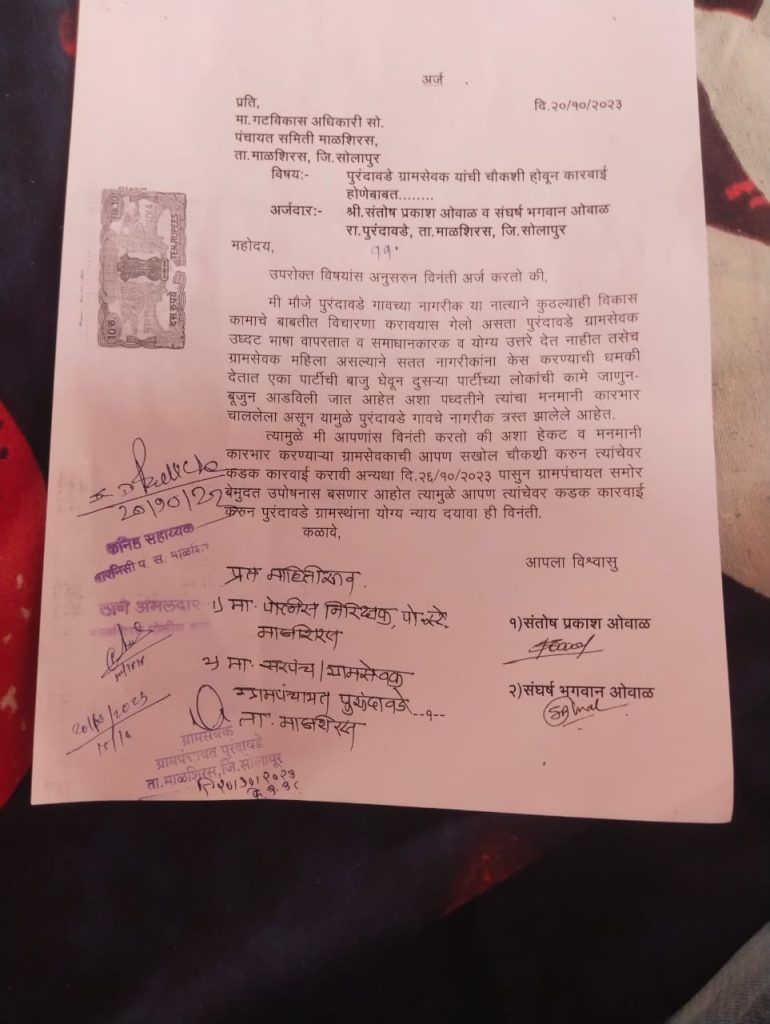 अर्ज
प्रति,
दि.२०/१०/२०२३
मा.गटविकास अधिकारी सो.
पंचायत समिती माळशिरस,
ता.माळशिरस, जि.सोलापुर
विषय:- पुरंदावडे ग्रामसेवक यांची चौकशी होवून कारवाई
होणेबाबत........
अर्जदार:- श्री.संतोष प्रकाश ओवाळ व संघर्ष भगवान ओवाळ
रा.पुरंदावडे, ता.माळशिरस, जि.सोलापुर
महोदय,
उपरोक्त विषयांस अनुसरुन विनंती अर्ज करतो की,
मी मौजे पुरंदावडे गावच्या नागरीक या नात्याने कुठल्याही विकास
कामाचे बाबतीत विचारणा करावयास गेलो असता पुरंदावडे ग्रामसेवक
उध्दट भाषा वापरतात व समाधानकारक व योग्य उत्तरे देत नाहीत तसेच
ग्रामसेवक महिला असल्याने सतत नागरीकांना केस करण्याची धमकी
देतात एका पार्टीची बाजु घेवून दुसऱ्या पार्टीच्या लोकांची कामे जाणुन-
बूजुन आडविली जात आहेत अशा पध्दतीने त्यांचा मनमानी कारभार
चाललेला असून यामुळे पुरंदावडे गावचे नागरीक त्रस्त झालेले आहेत.
त्यामुळे मी आपणांस विनंती करतो की अशा हेकट व मनमानी
कारभार करणाऱ्या ग्रामसेवकाची आपण सखोल चौकशी करुन त्यांचेवर
कडक कारवाई करावी अन्यथा दि.२६/१०/२०२३ पासुन ग्रामपंचायत समोर
बेमुदत उपोषनास बसणार आहोत त्यामुळे आपण त्यांचेवर कडक कारवाई
करुन पुरंदावडे ग्रामस्थांना योग्य न्याय दयावा ही विनंती.
कळावे,
आपला विश्वासु
१)संतोष प्रकाश ओवाळ
२)संघर्ष भगवान ओवाळ
प्रत माहितीस्तव
१) मा. पोलीस निरिक्षक, पो.स्टे.
माळशिरस
२) मा. सरपंच/ग्रामसेवक
ग्रामपंचायत पुरंदावडे
ता. माळशिरस
TEN RUPEES
दस रुपये
कनिष्ठ सहाय्यक
ठाणे अंमलदार
20/10/2023
ग्रामसेवक
ग्रामपंचायत पुरंदावडे
ता.माळशिरस,जि.सोलापूर